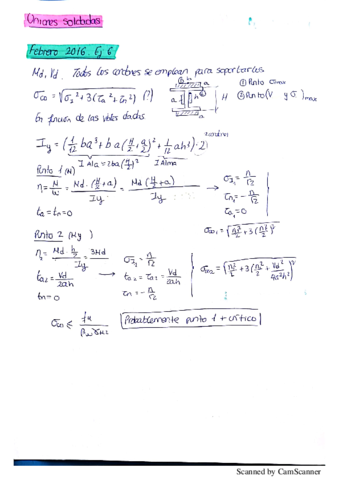 Uniones soldadas
Febrero 2016. Ej 6
Md, Vd. Todos los cordones se emplean para soportarlos
σco = √σ⊥² + 3(τa² + τn²) (?)
① Punto σmax
② Punto (V y σ)max
En función de los valores dados
Iy = (1/12 ba³ + ba(H/2 + a/2)² + 1/12 ah³)·2
Punto 1 (M)
n = M/W = Md·(H/2+a)/Iy = Md(H/2+a)/Iy
σ⊥1 = n/√2
τn1 = -n/√2
τa1 = 0
ta = tn = 0
σco1 = √n²/2 + 3(n²/2)
Punto 2 (M y )
n2 = Md·h/2/Iy = 3Md
ta2 = Vd/2ah
tn = 0
σ⊥2 = n/√2
ta2 = τa2 = Vd/2ah
τn = -n/√2
σco2 = √n²/2 + 3(n²/2 + Vd²/4a²h²)
σco ≤ fu/βw γM2
Probablemente punto 1 + crítico
Scanned by CamScanner